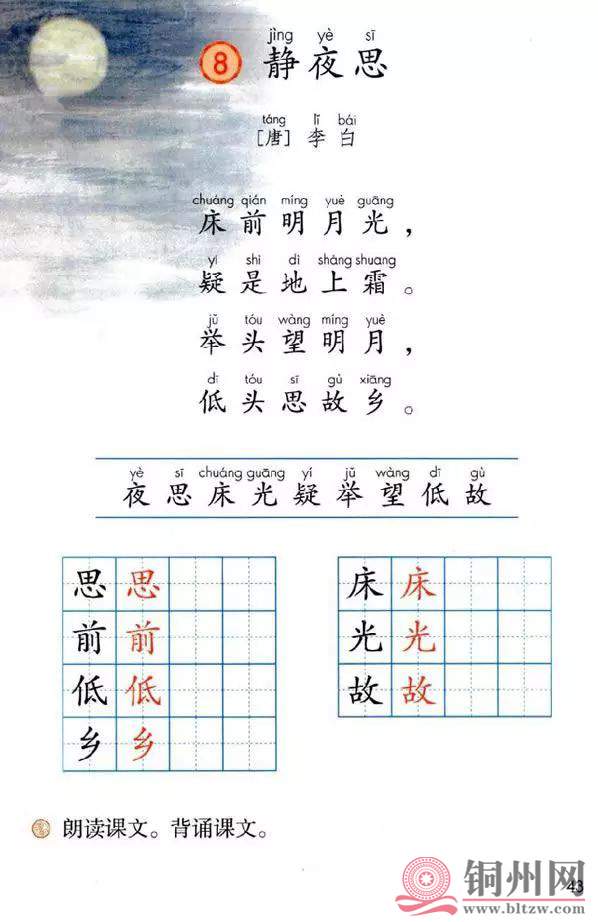 jìng yè sī
8 静夜思
táng lǐ bái
[唐] 李白
chuáng qián míng yuè guāng
床前明月光，
yí shì dì shàng shuāng
疑是地上霜。
jǔ tóu wàng míng yuè
举头望明月，
dī tóu sī gù xiāng
低头思故乡。
yè sī chuáng guāng yí jǔ wàng dī gù
夜思床光疑举望低故
思思 床床
前前 光光
低低 故故
乡乡
朗读课文。背诵课文。
43
铜州网
www.bltzw.com